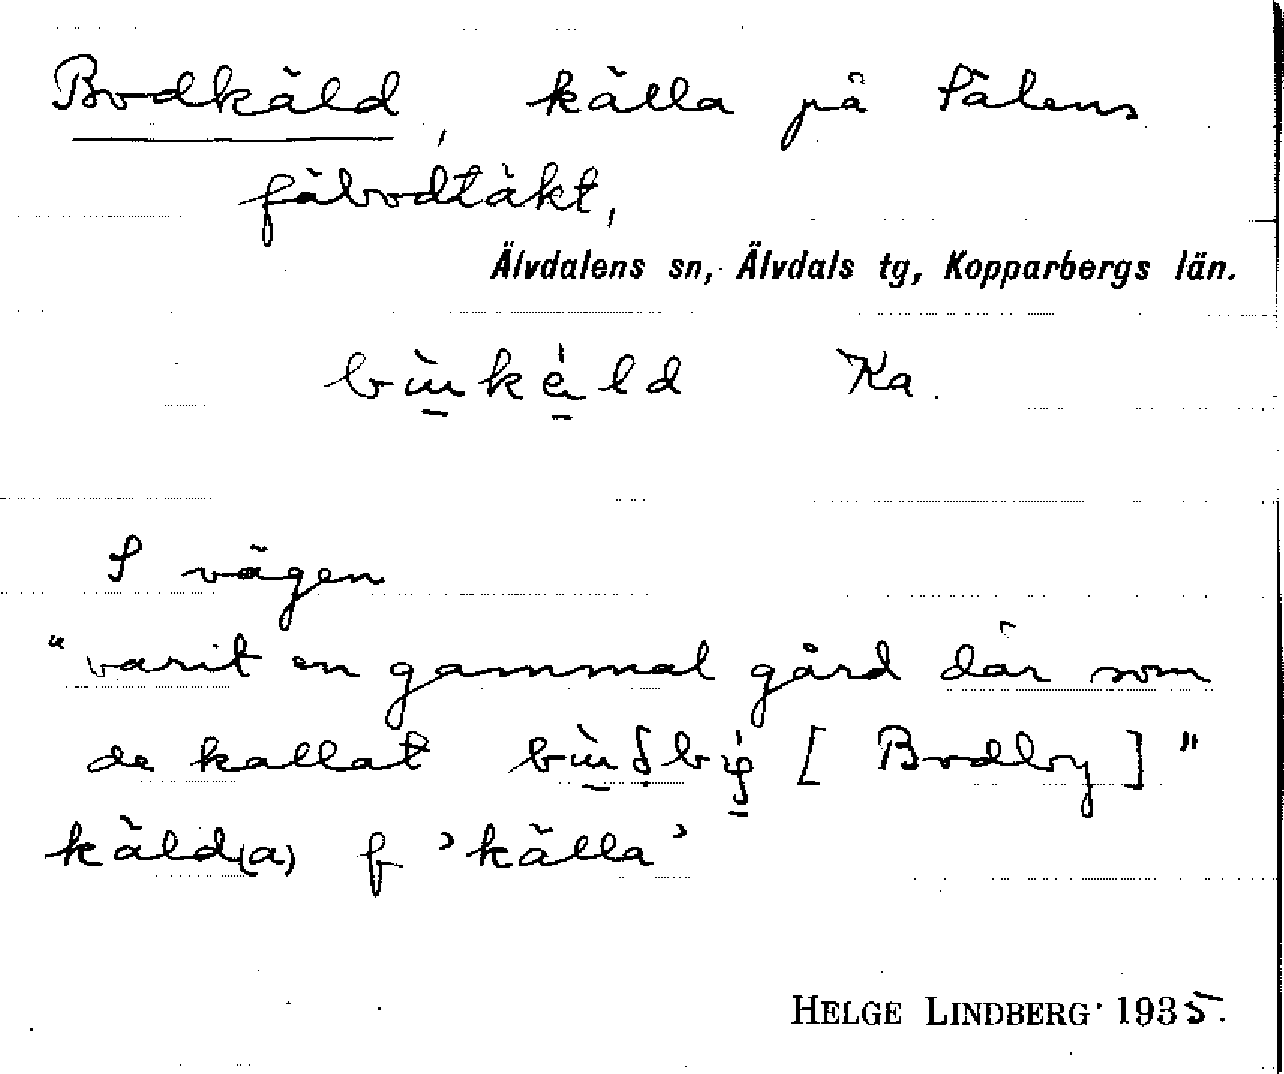 Bodkäld, källa på Tälens
fäbodtäkt,
Älvdalens sn, Älvdals tg, Kopparbergs län.
Ka.
S vägen
"varit en gammal gård där som
de kallat [Bodby]"
käld(a) f 'källa'
HELGE LINDBERG 1935.